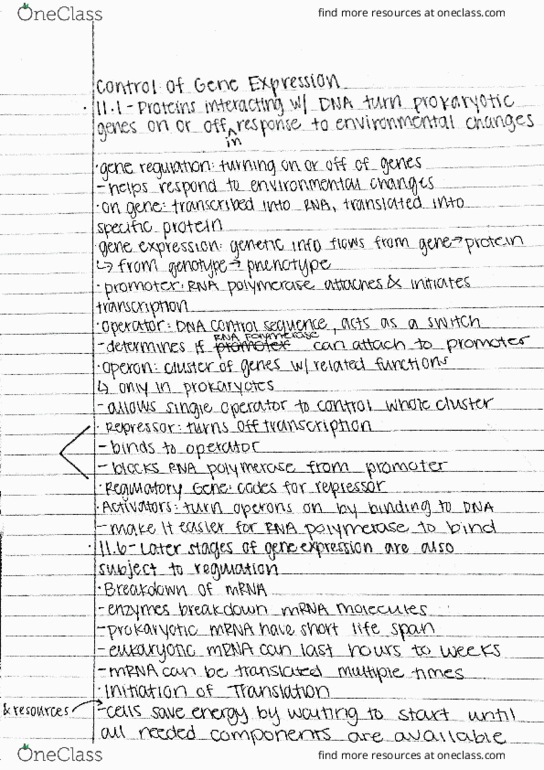 OneClass
find more resources at oneclass.com
Control of Gene Expression
· 11.1 - Proteins interacting w/ DNA turn prokaryotic
genes on or off in response to environmental changes
· gene regulation: turning on or off of genes
- helps respond to environmental changes
· on gene: transcribed into RNA, translated into
specific protein
· gene expression: genetic info flows from gene → protein
↳ from genotype → phenotype
· promoter: RNA polymerase attaches & initiates
transcription
· operator: DNA control sequence, acts as a switch
- determines if promoter RNA polymerase can attach to promoter
· operon: cluster of genes w/ related functions
↳ only in prokaryotes
- allows single operator to control whole cluster
· Repressor: turns off transcription
- binds to operator
- blocks RNA polymerase from promoter
· Regulatory Gene: codes for repressor
· Activators: turn operons on by binding to DNA
- make it easier for RNA polymerase to bind
· 11.6 - Later stages of gene expression are also
subject to regulation
· Breakdown of mRNA
- enzymes breakdown mRNA molecules
- prokaryotic mRNA have short life span
- eukaryotic mRNA can last hours to weeks
- mRNA can be translated multiple times
· Initiation of Translation
& resources
- cells save energy by waiting to start until
all needed components are available
OneClass
find more resources at oneclass.com